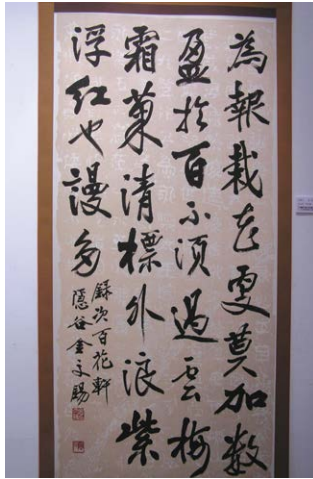 為報栽花更莫加数
盈於百不須過雪梅
霜菊清標外浪紫
浮紅也謾多
錄次百花軒
隱谷金文賜